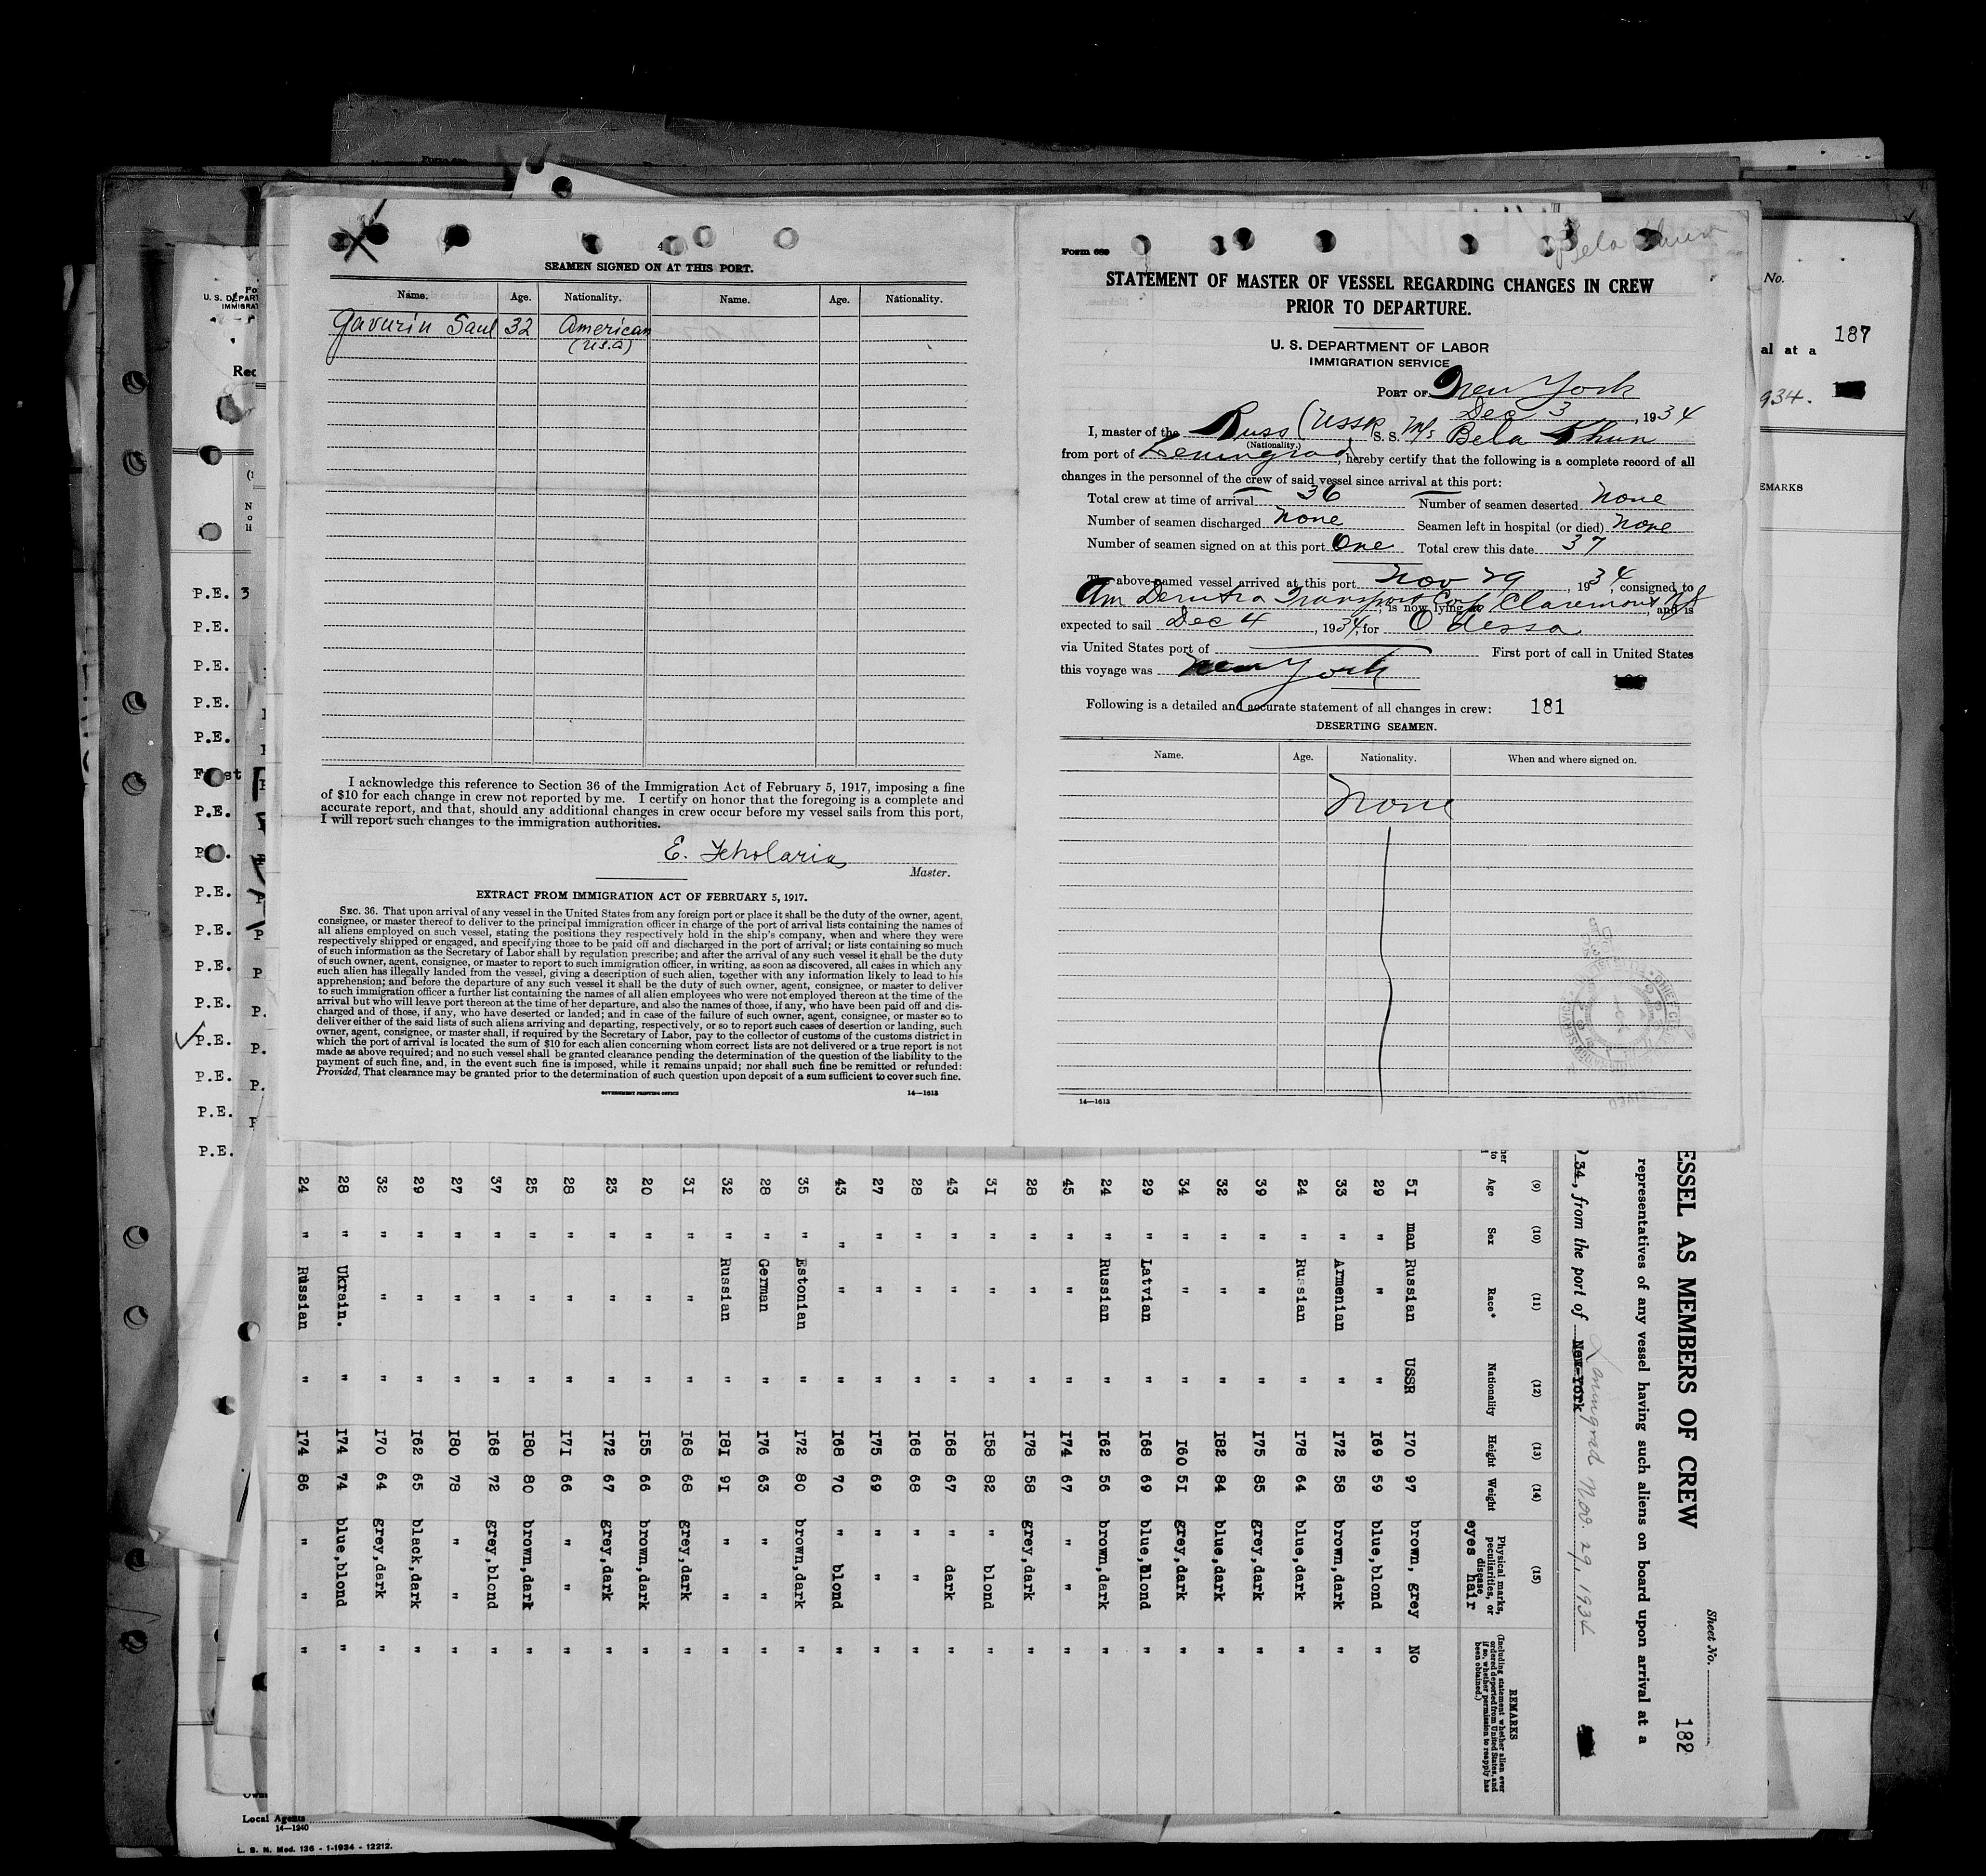 4
SEAMEN SIGNED ON AT THIS PORT.
Name. Age. Nationality. Name. Age. Nationality.
Gavurin Saul 32 American
(U.S.A)
I acknowledge this reference to Section 36 of the Immigration Act of February 5, 1917, imposing a fine
of $10 for each change in crew not reported by me. I certify on honor that the foregoing is a complete and
accurate report, and that, should any additional changes in crew occur before my vessel sails from this port,
I will report such changes to the immigration authorities.
E.
Master.
EXTRACT FROM IMMIGRATION ACT OF FEBRUARY 5, 1917.
SEC. 36. That upon arrival of any vessel in the United States from any foreign port or place it shall be the duty of the owner, agent,
consignee, or master thereof to deliver to the principal immigration officer in charge of the port of arrival lists containing the names of
all aliens employed on such vessel, stating the positions they respectively hold in the ship's company, when and where they were
respectively shipped or engaged, and specifying those to be paid off and discharged in the port of arrival; or lists containing so much
of such information as the Secretary of Labor shall by regulation prescribe; and after the arrival of any such vessel it shall be the duty
of such owner, agent, consignee, or master to report to such immigration officer, in writing, as soon as discovered, all cases in which any
such alien has illegally landed from the vessel, giving a description of such alien, together with any information likely to lead to his
apprehension; and before the departure of any such vessel it shall be the duty of such owner, agent, consignee, or master to deliver
to such immigration officer a further list containing the names of all alien employees who were not employed thereon at the time of the
arrival but who will leave port thereon at the time of her departure, and also the names of those, if any, who have been paid off and dis-
charged and of those, if any, who have deserted or landed; and in case of the failure of such owner, agent, consignee, or master so to
deliver either of the said lists of such aliens arriving and departing, respectively, or so to report such cases of desertion or landing, such
owner, agent, consignee, or master shall, if required by the Secretary of Labor, pay to the collector of customs of the customs district in
which the port of arrival is located the sum of $10 for each alien concerning whom correct lists are not delivered or a true report is not
made as above required; and no such vessel shall be granted clearance pending the determination of the question of the liability to the
payment of such fine, and, in the event such fine is imposed, while it remains unpaid; nor shall such fine be remitted or refunded:
Provided, That clearance may be granted prior to the determination of such question upon deposit of a sum sufficient to cover such fine.
GOVERNMENT PRINTING OFFICE 14—1613
Form 689
Bela Khun
STATEMENT OF MASTER OF VESSEL REGARDING CHANGES IN CREW
PRIOR TO DEPARTURE.
U. S. DEPARTMENT OF LABOR
IMMIGRATION SERVICE
PORT OF New York
Dec 3, 1934
I, master of the Russ (USSR S. S. M/s Bela Khun
(Nationality.)
from port of Leningrad, hereby certify that the following is a complete record of all
changes in the personnel of the crew of said vessel since arrival at this port:
Total crew at time of arrival 36 Number of seamen deserted none
Number of seamen discharged none Seamen left in hospital (or died) none
Number of seamen signed on at this port One Total crew this date 37
The above-named vessel arrived at this port Nov 29, 1934, consigned to
Am Derutra Transport Corp, is now lying at Claremont, and is
expected to sail Dec 4, 1934, for Odessa
via United States port of First port of call in United States
this voyage was New York
Following is a detailed and accurate statement of all changes in crew: 181
DESERTING SEAMEN.
Name. Age. Nationality. When and where signed on.
None
14—1613
No.
187
al at a
934.
EMARKS
U. S. DEPART
IMMIGRAT
Rec
P.E. 3
P.E.
P.E.
P.E.
P.E.
P.E.
P.E.
P.E.
P.E.
P.E.
P.E.
P.E.
P.E.
P.E.
Local Agents
14—1240
L. S. N. Med. 136 - 1-1934 - 12212.
Sheet No.
182
ESSEL AS MEMBERS OF CREW
representatives of any vessel having such aliens on board upon arrival at a
34, from the port of New York Leningrad Nov. 29, 1934
(9) (10) (11) (12) (13) (14) (15)
Age Sex Race* Nationality Height Weight Physical marks, peculiarities, or disease eyes hair REMARKS
(Including statement whether alien ever ordered deported from United States, and if so, whether permission to reapply has been obtained.)
51 man Russian USSR 170 97 brown, grey No
29 " " " 169 59 blue,blond "
33 " Armenian " 172 58 brown,dark "
24 " Russian " 178 64 blue,dark "
39 " " " 175 85 grey,dark "
32 " " " 182 84 blue,dark "
34 " " " 160 51 grey,dark "
29 " Latvian " 168 69 blue,blond "
24 " Russian " 162 56 brown,dark "
45 " " " 174 67 " " "
28 " " " 178 58 grey,dark "
31 " " " 158 82 " blond "
43 " " " 168 67 " dark "
28 " " " 168 68 " " "
27 " " " 175 69 " " "
43 " " " 168 70 " blond "
35 " Estonian " 172 80 brown,dark "
28 " German " 176 63 " " "
32 " Russian " 181 91 " " "
31 " " " 168 68 grey,dark "
20 " " " 155 66 brown,dark "
23 " " " 172 67 grey,dark "
28 " " " 171 66 " " "
25 " " " 180 80 brown,dark "
37 " " " 168 72 grey,blond "
27 " " " 180 78 " " "
29 " " " 162 65 black,dark "
32 " " " 170 64 grey,dark "
28 " Ukrain. " 174 74 blue,blond "
24 " Russian " 174 86 " " "